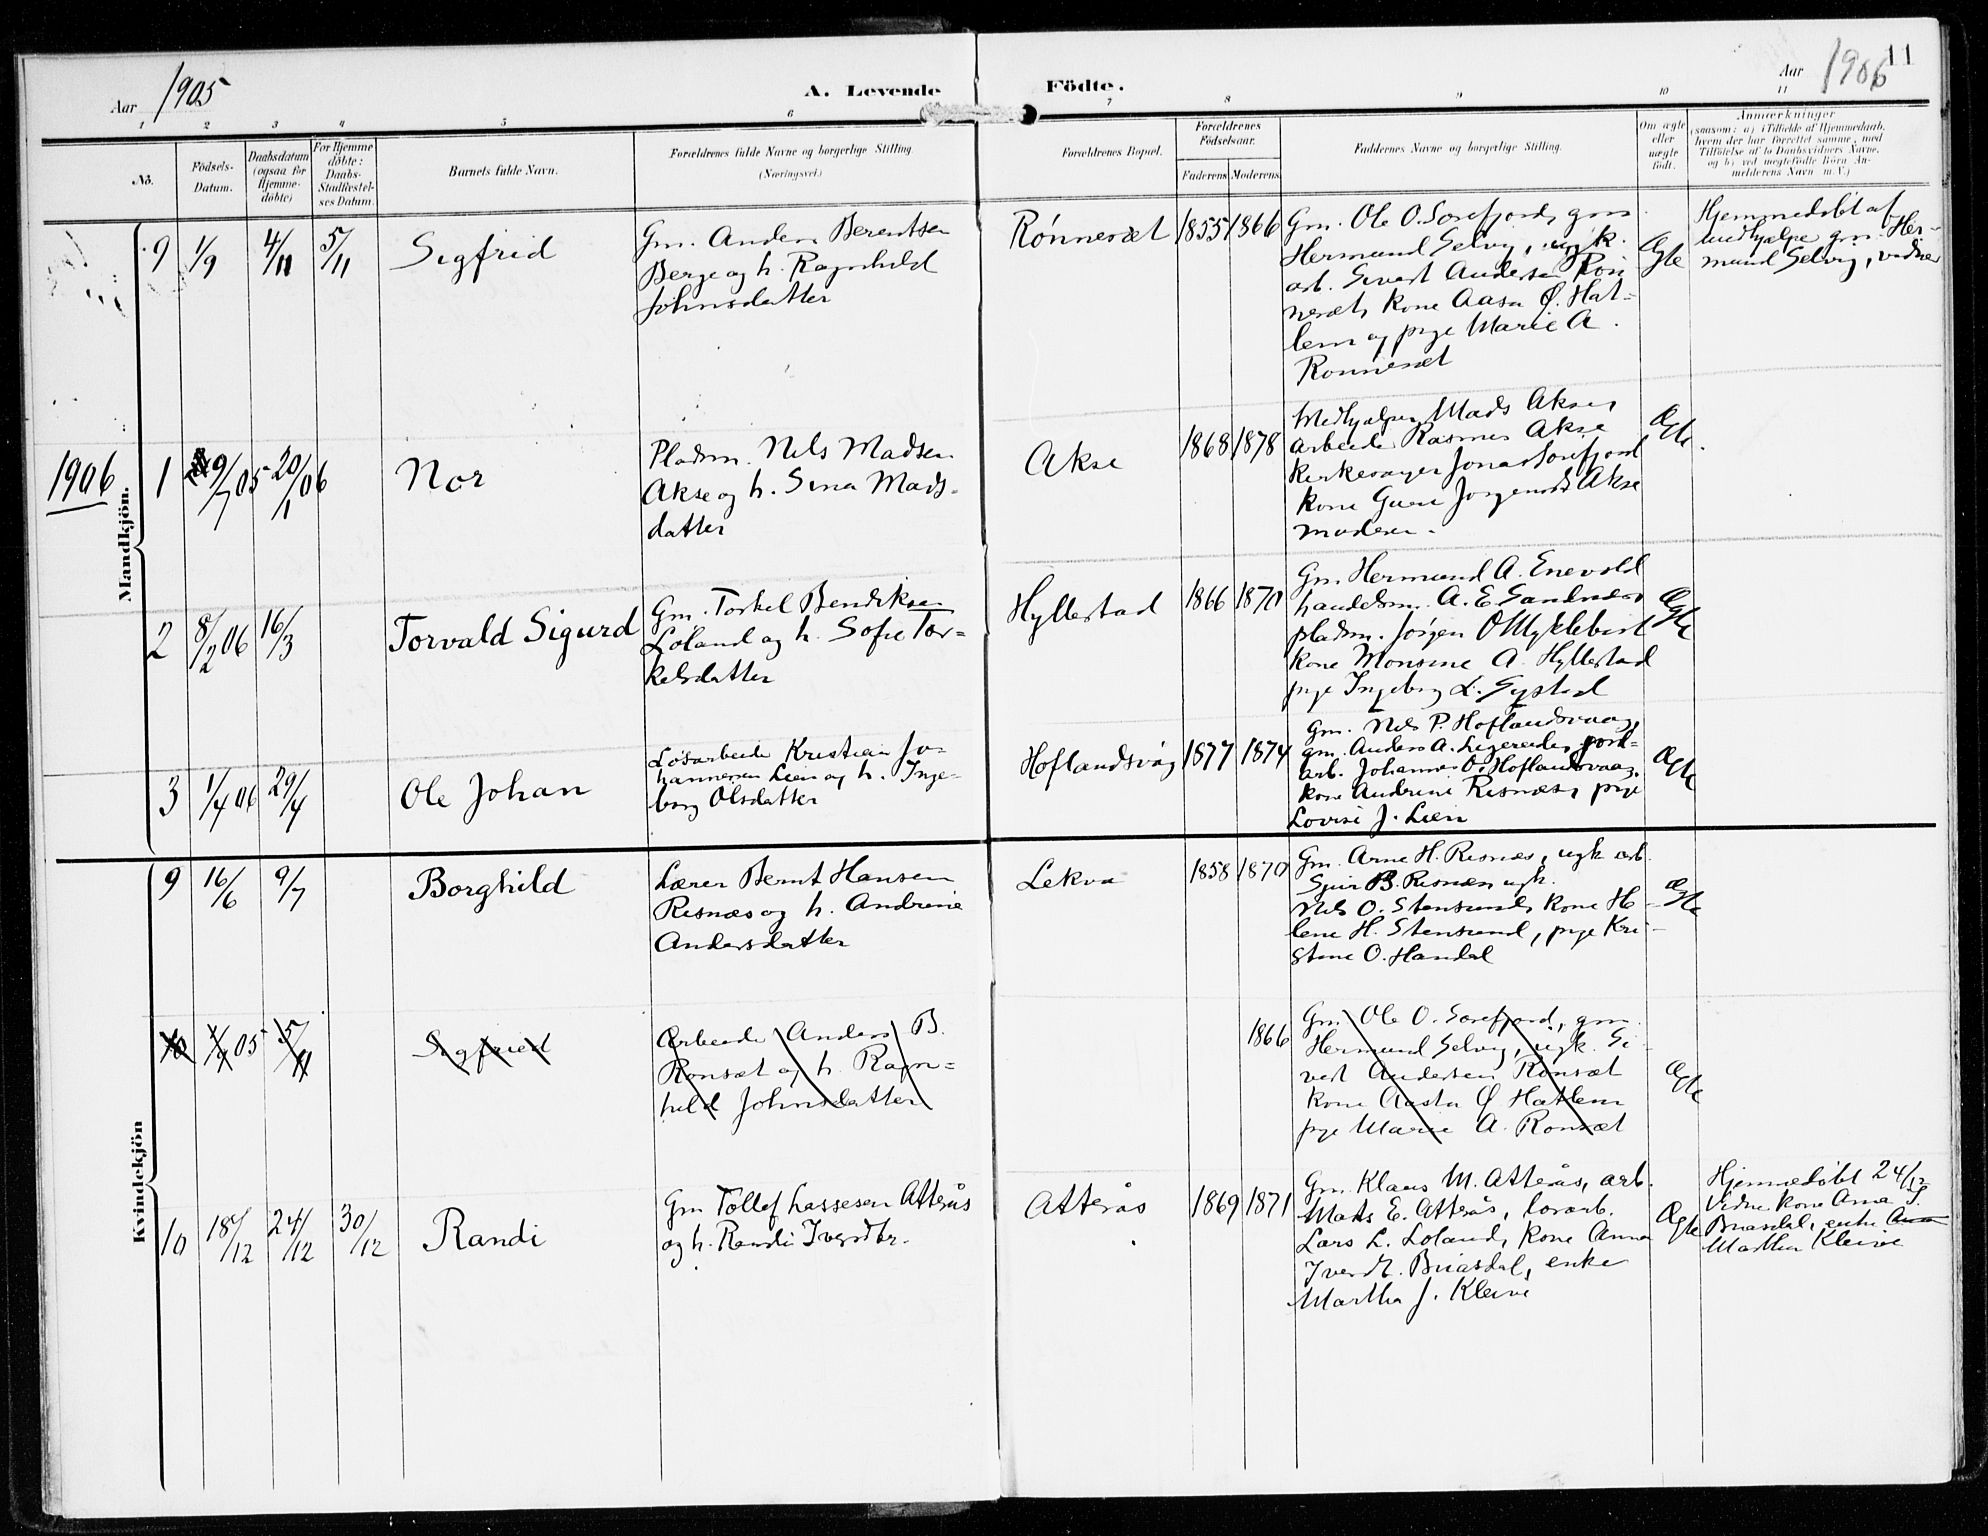 11
Aar 1905
A. Levende Födte.
Aar 1906
1 2 3 4 5 6 7 8 9 10 11
No.
Födsels-
Datum.
Daabsdatum
(ogsaa for
Hjemme-
döbte)
For Hjemme
döbte:
Daabs-
Stadfæstel-
ses Datum.
Barnets fulde Navn.
Forældrenes fulde Navne og borgerlige Stilling.
(Næringsvei.)
Forældrenes Bopæl.
Forældrenes
Födselsaar.
Faderens Moderens
Faddernes Navne og borgerlige Stilling.
Om ægte
eller
uægte
födt.
Anmærkninger
(saasom: a) i Tilfælde af Hjemmedaab,
hvem der har forrettet samme, med
Tilföielse af to Daabsvidners Navne,
og b) ved uegtefödte Börn An-
melderens Navn m. V.)
Mandkjön.
9 1/9 4/11 5/11 Sigfrid
Gm. Anders Berentsen
Berge og h. Ragnhild
Johnsdatter
Rønneset 1855 1866
Gm. Ole O. Sørefjord, gm
Hermund Selvig, ugk.
arb. Sivert Andersen Røn
neset, kone Aasta Ø. Hat=
lem og pige Marie A.
Rønneset
Ægte
Hjemmedøbt af
medhjælper gm. Her=
mund Selvig, vidner
1906
1 9/7 05 20/1 06 Nor
Pladsm. Nils Madsen
Akse og h. Sina Mads-
datter
Akse 1868 1878
Medhjælper Mads Akse,
arbeider Rasmus Akse
Kirkesanger Jonas Sørefjord
Kone Guri Jørgensd. Akse
moderen.
Ægte.
2 8/2 06 16/3 Torvald Sigurd
Gm. Torkel Bendiksen
Loland og h. Sofie Tor=
kelsdatter
Hyllestad 1866 1870
Gm. Hermund A. Enevold
handelsm. A. E. Sandnæs,
pladsm. Jørgen O Myklebust
kone Monsine A. Hyllestad
pige Ingeborg L. Systad
Ægte
3 1/4 06 29/4 Ole Johan
Løsarbeider Kristian Jo-
hannesen Lien og h. Inge-
borg Olsdatter
Hoflandsvåg 1877 1874
Gm. Nils P. Hoflandsvaag,
gm. Anders A. Ligereider, jord-
arb. Johannes O. Hoflandsvaag,
kone Andrine Risnæs, pige
Lovise J. Lien
Ægte
Kvindekjön
9 16/6 9/7 Borghild
Lærer Bernt Hansen
Risnæs og h. Andrine
Andersdatter
Lekva 1858 1870
Gm. Arne H. Risnæs, ugk arb.
B. Risnæs ugk.
Nils O. Stensund, kone He-
lene H. Stensund, pige Kri-
stine O. Handal
Ægte
10 1/9 05 5/11 Sigfried
Arbeider Anders B.
Rønset og h. Ragn=
hild Johnsdatter
1866
Gm. Ole O. Sørefjord, gm.
Hermund Selvig, ugk. Si-
vert Andersen Rønset
kone Aasta Ø Hatlem
pige Marie A. Rønset
Ægte
10 18/12 24/12 30/12 Randi
Gm Tollef Lassesen Atterås
og h. Randi Iversdtr.
Atterås 1869 1871
Gm. Klaus M. Atterås, arb.
Mats E. Atterås, løsarb.
Lars L. Loland, kone Anna
Iversdt. Birasdal, enke
Martha J. Kleive
Ægte
Hjemmedøbt 24/12
Vidne kone Anna I.
Birasdal, enke Anna
Martha Kleive